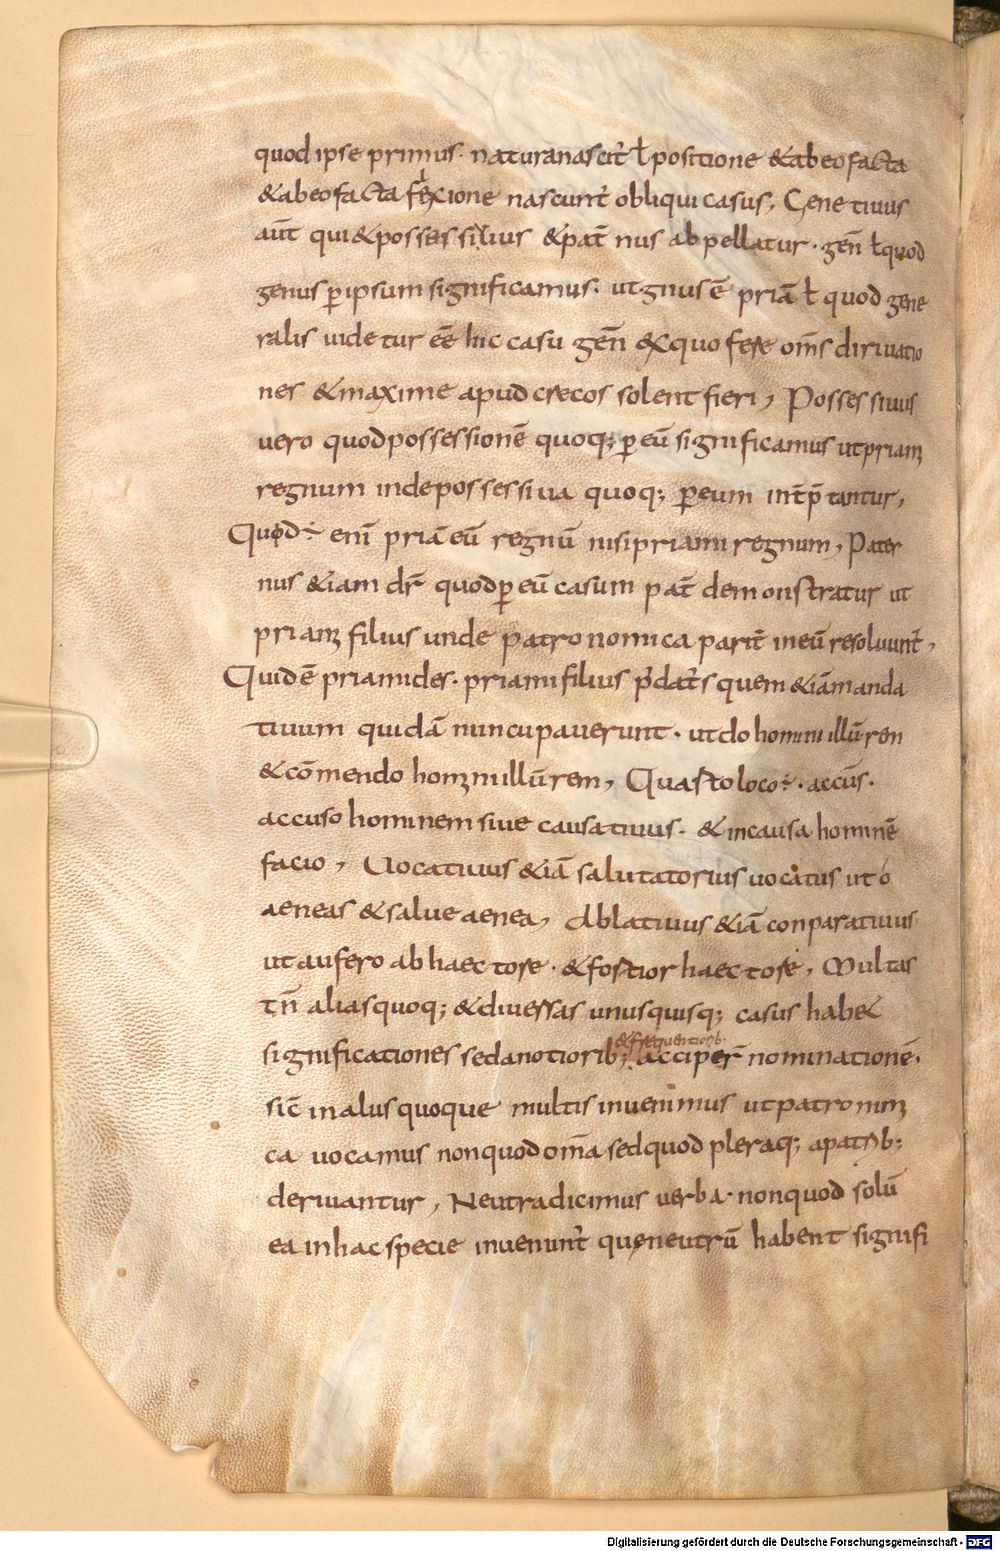 quod ipse primus · natura nascit̄ ł positione & ab eo facta
& ab eo facta flexione nascunt̄ obliqui casus, Gene tiuus
aūt qui & possessiuus & pat̄ nus abpellatur · gen̄ ł quod
genus ꝑ ipsum significamus · ut gnus ē priā ł quod gene
ralis uidetur eē hic casu gen̄ ex quo fere om̄s diriuatio
nes & maxime apud crecos solent fieri, Possessiuus
uero quod possessionē quoq; ꝑ eū significamus ut priam
regnum inde possessiua quoq; ꝑ eum int̄p̄tantur,
Quod ÷ enī priā eū regnū nisi priami regnum, Pater
nus &iam dr̄ quod ꝑ eū casum pat̄ demonstratur ut
priam filius unde patronomica parit̄ in eū resoluunt̄,
Quid ē priamides · priami filius p̄dat̄s quem &iā manda
tiuum quidā nuncupauerunt · ut do homini illū ren
& cōmendo homini illū rem, Quasto loco ÷ · accūs ·
accuso hominem siue causatiuus · & in causa hominē
facio, Uocatiuus &iā salutatorius uocatus ut o
aeneas & salue aenea, Ablatiuus &iā conparatiuus
ut aufero ab haectore · & fostior haectore, Multas
tn̄ alias quoq; & diuersas unusquisq; casus hab&
& frequentiorib·
significationes sed a notiorib; acciper̄ nominationē ·
sic̄ in aliis quoque multis inuenimus ut patronim
ca uocamus non quod om̄a sed quod pleraq; a patrib;
deriuantur, Neutra dicimus uerba · non quod solū
ea in hac specie inueniunt̄ que neutrū habent signifi
Digitalisierung gefördert durch die Deutsche Forschungsgemeinschaft - DFG